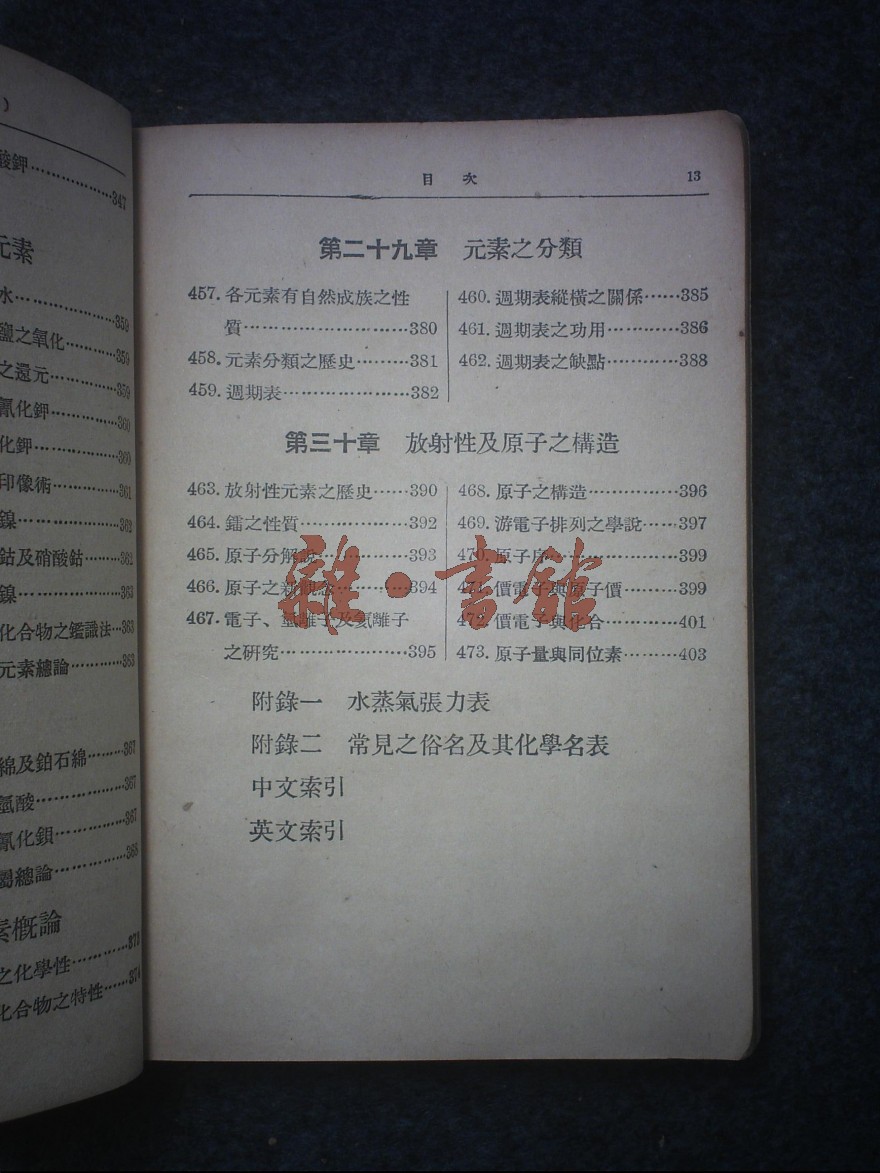 )
酸鉀………………347
元素
水………………359
鹽之氧化…………359
之還元……………359
氰化鉀……………360
化鉀………………360
印像術……………361
鎳…………………362
鈷及硝酸鈷………362
鎳…………………363
化合物之鑑識法…363
元素總論…………363
綿及鉑石綿………367
氫酸………………367
氰化鋇……………367
屬總論……………368
素概論
之化學性…………373
化合物之特性……374
目 次 13
第二十九章 元素之分類
457. 各元素有自然成族之性
質………………………380
458. 元素分類之歷史………381
459. 週期表…………………382
460. 週期表縱橫之關係……385
461. 週期表之功用…………386
462. 週期表之缺點…………388
第三十章 放射性及原子之構造
463. 放射性元素之歷史……390
464. 鐳之性質………………392
465. 原子分解說……………393
466. 原子之新觀念…………394
467. 電子、氫離子及氦離子
之研究…………………395
468. 原子之構造……………396
469. 游電子排列之學說……397
470. 原子序…………………399
471. 價電子與原子價………399
472. 價電子與化合…………401
473. 原子量與同位素………403
附錄一 水蒸氣張力表
附錄二 常見之俗名及其化學名表
中文索引
英文索引
雜·書館